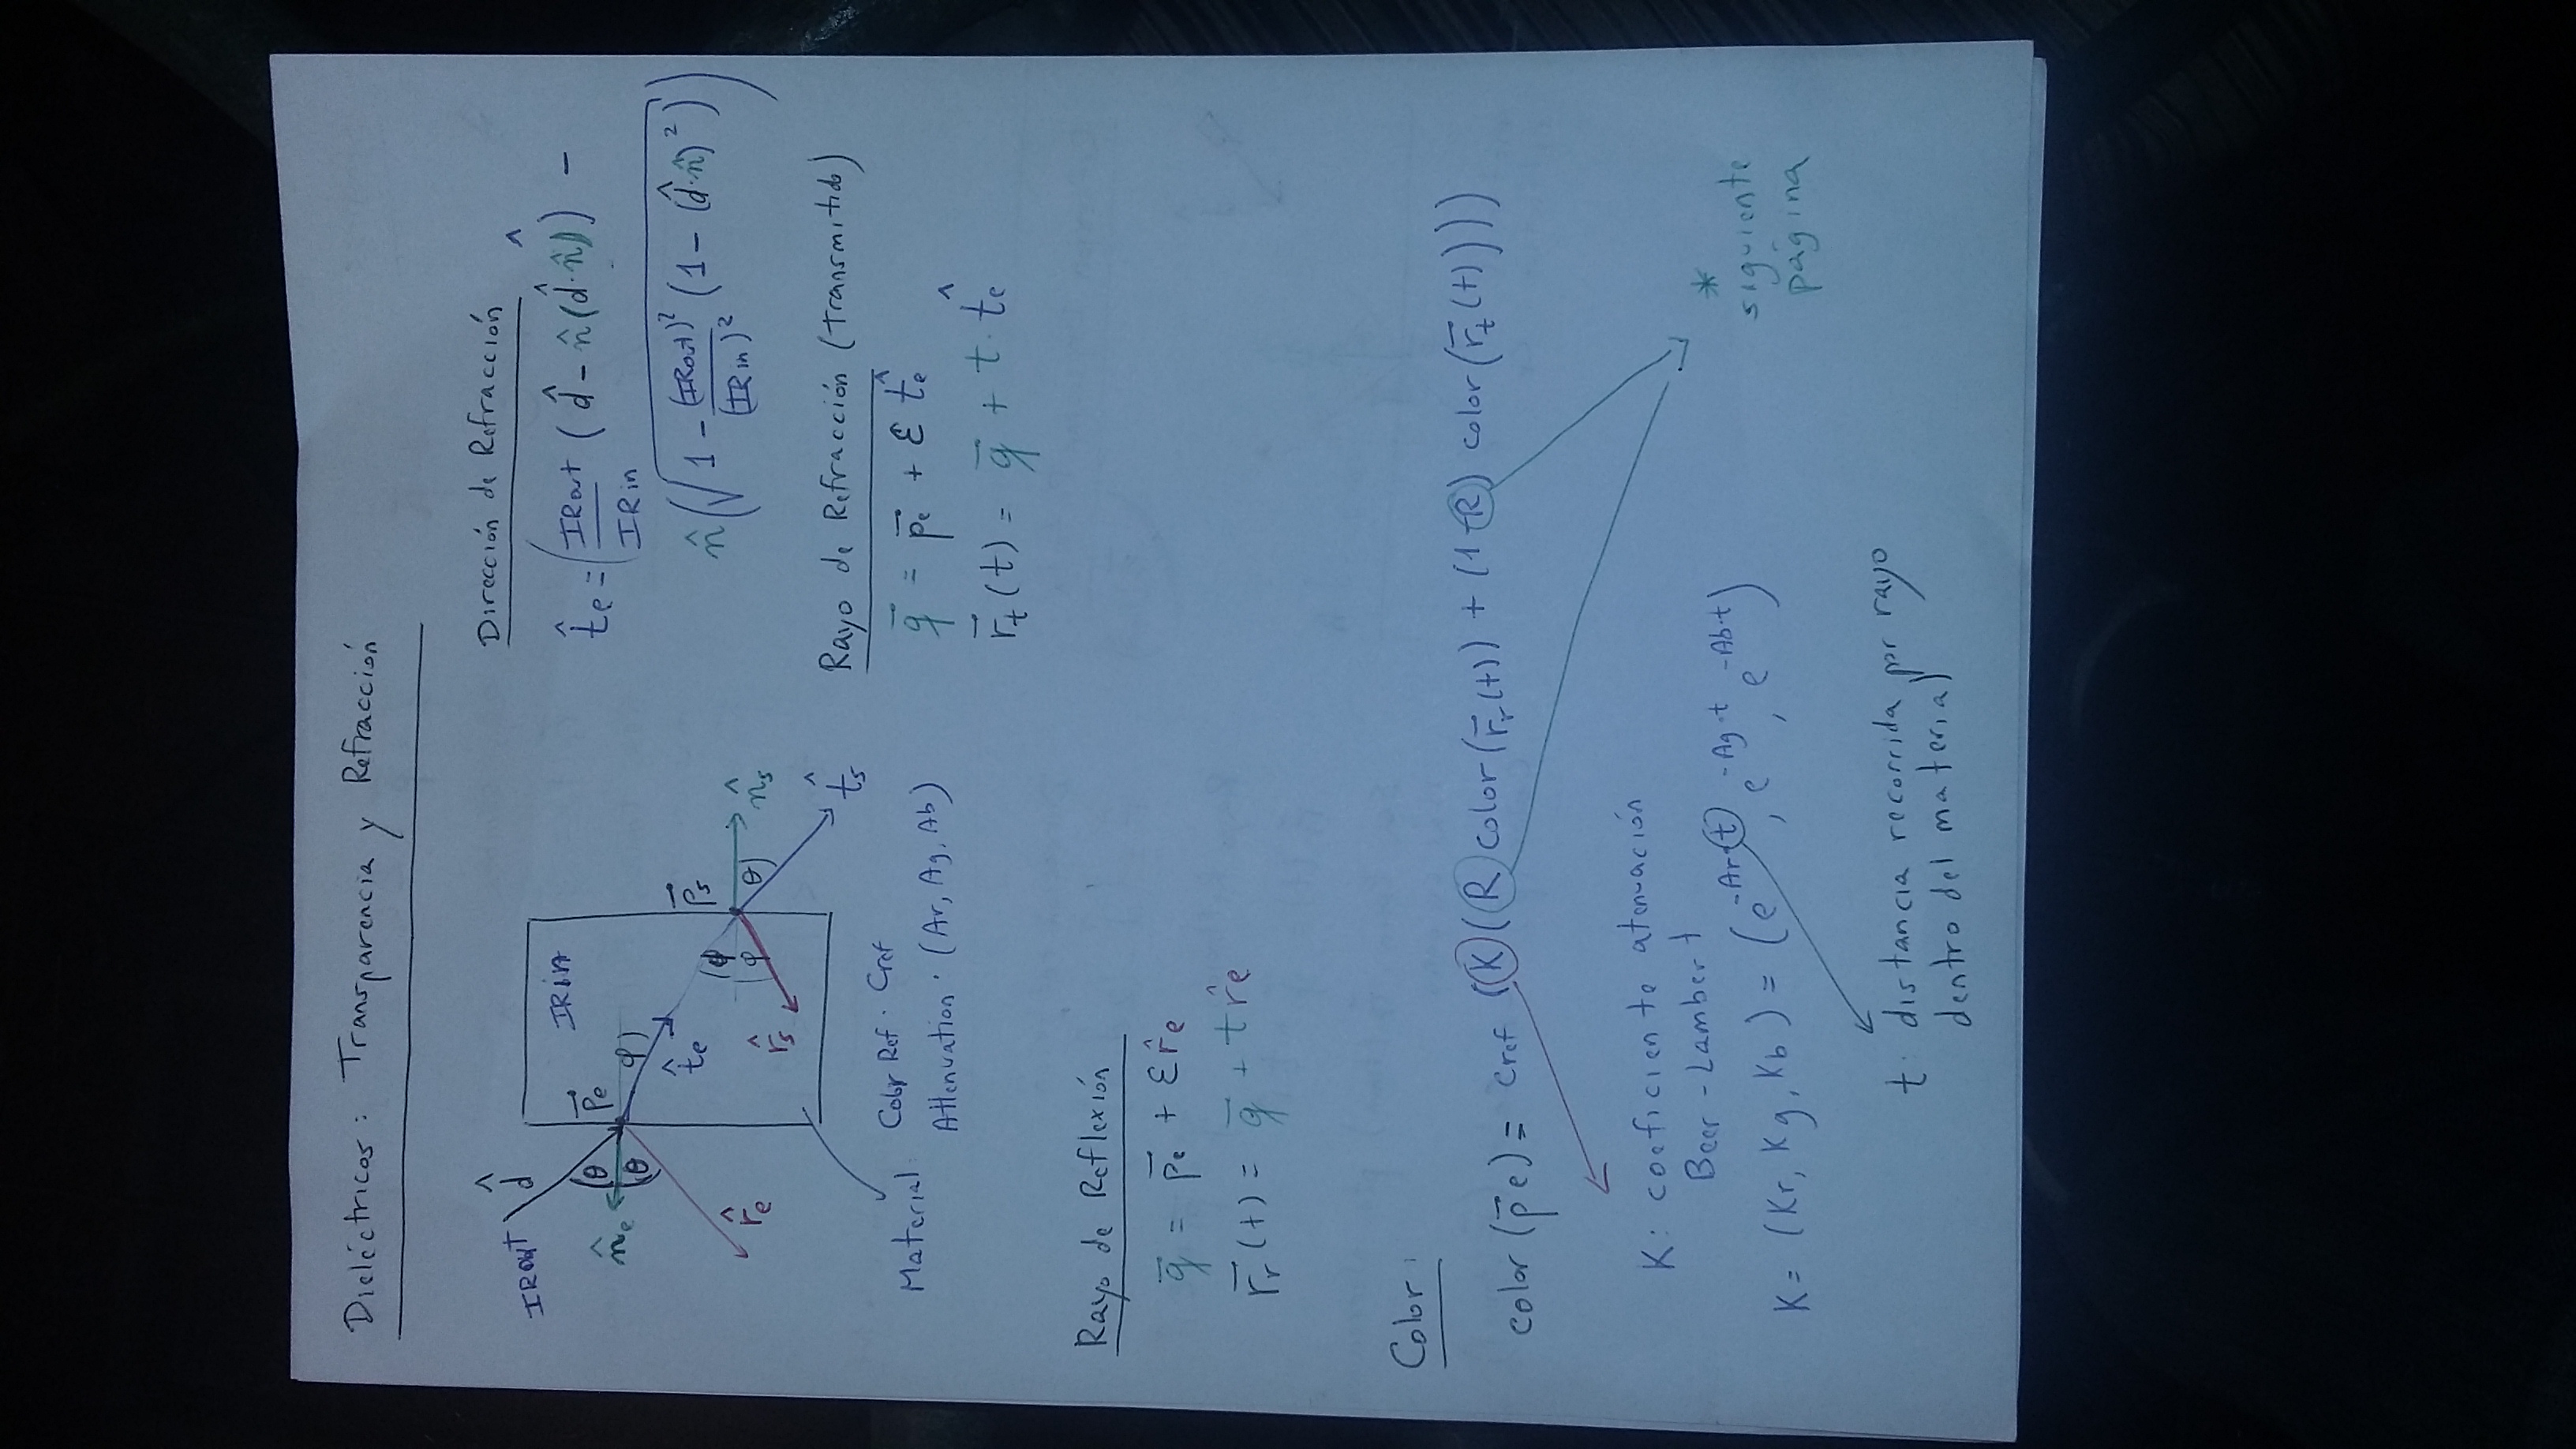 Dieléctricos: Transparencia y Refracción
IRout d̂
IRin
n̂e θ p⃗e
θ φ
t̂e
r̂e
φ p⃗s
φ θ n̂s
r̂s
t̂s
Material: Color Ref. Cref
Attenuation. (Ar, Ag, Ab)
Dirección de Refracción
t̂e = ( IRout / IRin ( d̂ - n̂(d̂·n̂) ) -
n̂ ( √ 1 - (IRout)² / (IRin)² (1 - (d̂·n̂)²) ) )
Rayo de Refracción (transmitido)
q̄ = p̄e + ε t̂e
r̄t(t) = q̄ + t · t̂e
Rayo de Reflexión
q̄ = p̄e + ε r̂e
r̄r(t) = q̄ + t r̂e
Color:
color (p̄e) = Cref (K (R color (r̄r(t)) + (1-R) color (r̄t(t))))
K: coeficiente atenuación
Beer-Lambert
K = (Kr, Kg, Kb) = (e^-Ar·t, e^-Ag·t, e^-Ab·t)
t: distancia recorrida por rayo
dentro del material
*
siguiente
página